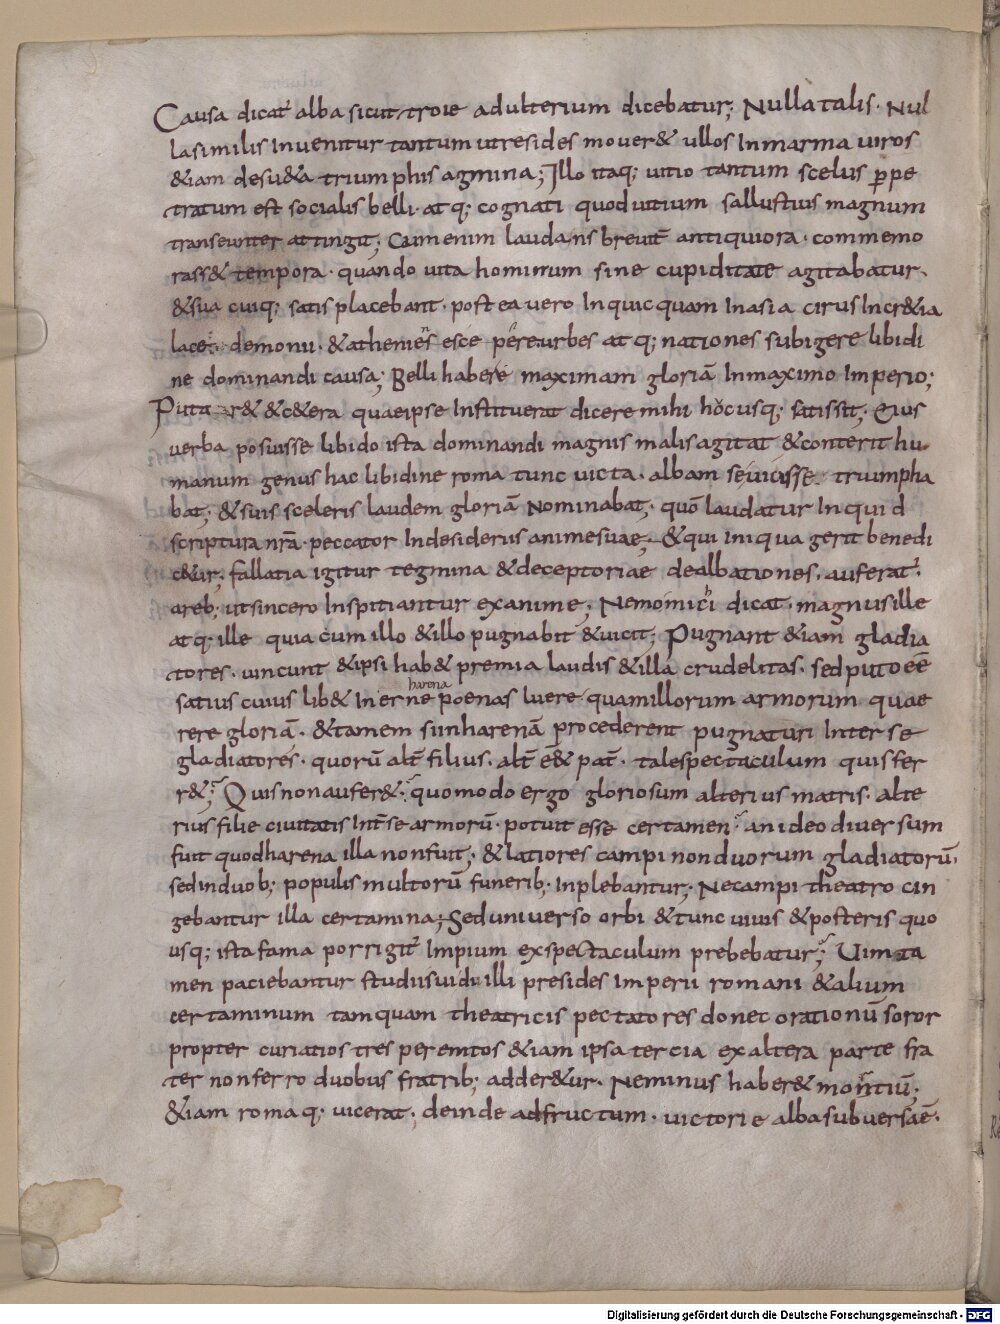 Causa dicat̛ alba sicut troie adulterium dicebatur; Nulla talis · Nul
la similis invenitur tantum ut resides mover& ullos In marma viros
&iam desu&a trium phis agmina; Illo itaq; vitio tantum scelus ꝑpe
tratum est socialis belli · at q; cognati quod uitium sallustius magnum
transeunter attingit; Cum enim laudans brevit̅ antiquiora · commemo
rass& tempora · quando vita hominum sine cupiditate agitabatur ·
&sua cuiq; satis placebant · post ea vero In quic quam In asia cirus In cr&ia
lace demonii · &athenies esce pere urbes at q; nationes subigere libidi
ne dominandi causa; Belli habere maximam gloriā In maximo Imperio;
Puta r& &c&era quae ipse Instituerat dicere mihi hoc usq; satis sit; Eius
verba posuisse libido ista dominandi magnis malis agitat &conterit hu
manum genus hac libidine roma tunc victa · albam se viciisse triumpha
bat; &suis sceleris laudem gloriā Nominabat; quō laudatur Inquid
scriptura nr̄a · peccator In desideriis anime suae · &qui iniqua gerit benedi
c&ur; fallatia igitur tegmina &deceptoriae dealbationes · auferat̛ ·
areb; ut sincero Inspitiantur examine; Nemo mici dicat · magnus ille
at q; ille quia cum illo &illo pugnabit &vicit; Pugnant &iam gladia
tores · vincunt &ipsi hab& premia laudis &illa crudelitas · sed puto eē
harena
satius cuius lib& In er ne poenas luere quam illorum armorum quae
rere gloriā · &tamen si in harenā procederent pugnaturi Inter se
gladiatores · quorū alt̄ filius · alt̄ e&̄ pat̄ · tale spectaculum quis fer
r&; Quis non aufer& · quomodo ergo gloriosum alterius matris · alte
rius filie civitatis Int̄ se armorū · potuit esse certamen · an ideo diversum
fuit quod harena illa non fuit; &latiores campi non duorum gladiatorū ·
sed in duob; populis multorū funerib; Inplebantur; Nec ampi theatro cin
gebantur illa certamina; Sed universo orbi &tunc vivis &posteris quo
usq; ista fama porrigit̛ Impium exspectaculum prebebatur; Uim ta
men paciebantur studii sui dii illi presides Imperii romani &alium
certaminum tamquam theatricis pectatores donec orationū soror
propter curiatios tres peremtos &iam ipsa tercia ex altera parte fra
ter non ferro duobus fratrib; adder&ur · Neminus haber& mortiū;
&iam romaq; vicerat; deinde ad fructum · victorie alba subversa ē ·
Digitalisierung gefördert durch die Deutsche Forschungsgemeinschaft - DFG